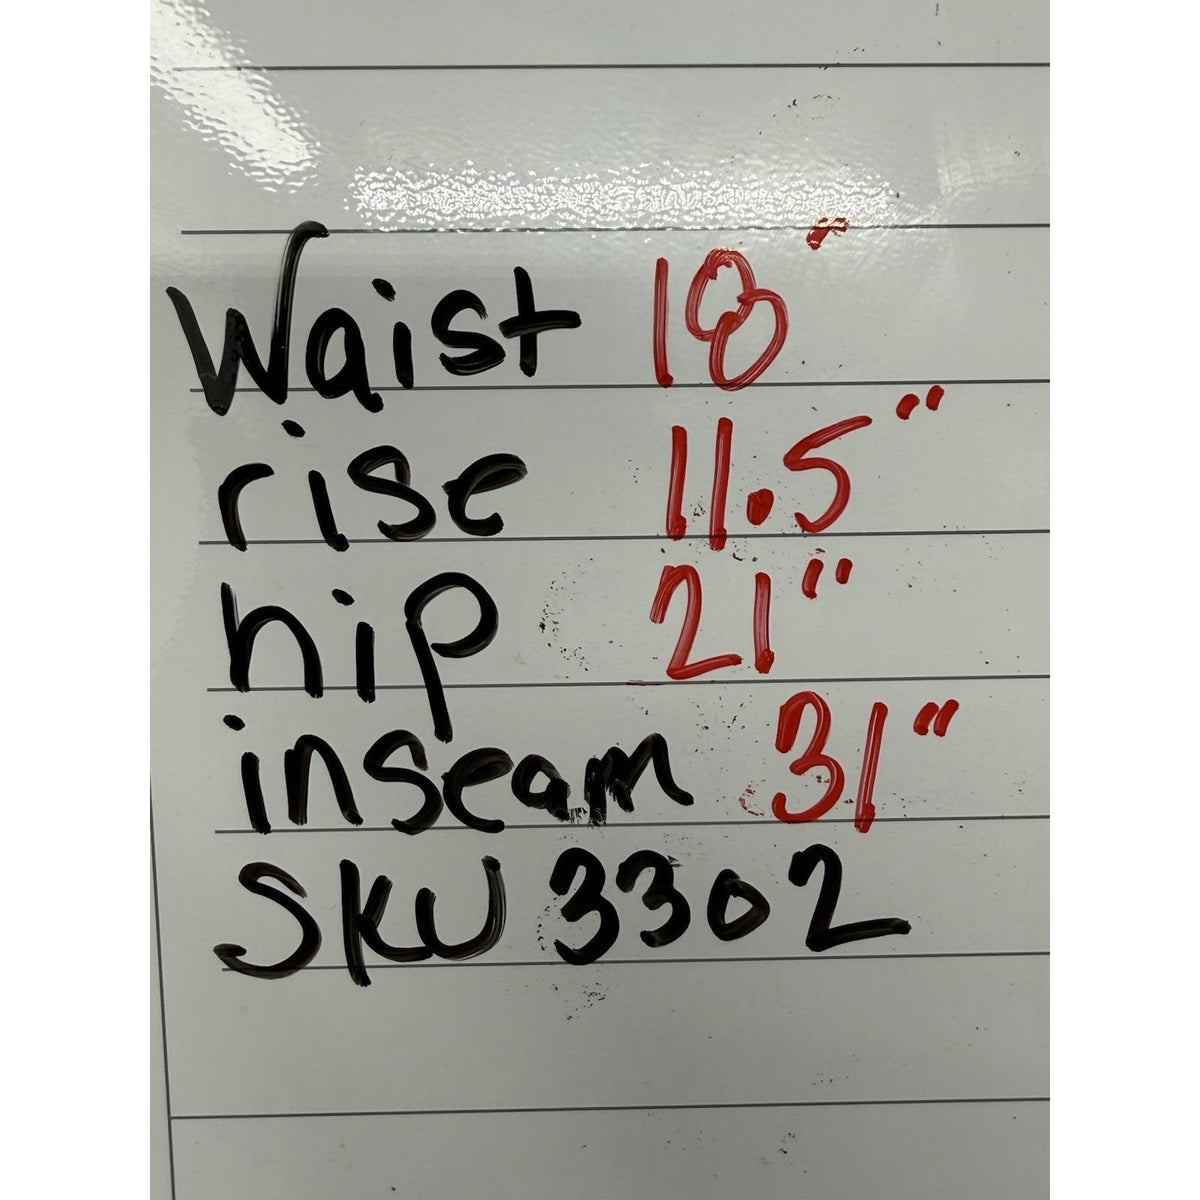 Waist 18"
rise 11.5"
hip 21"
inseam 31"
SKU 3302